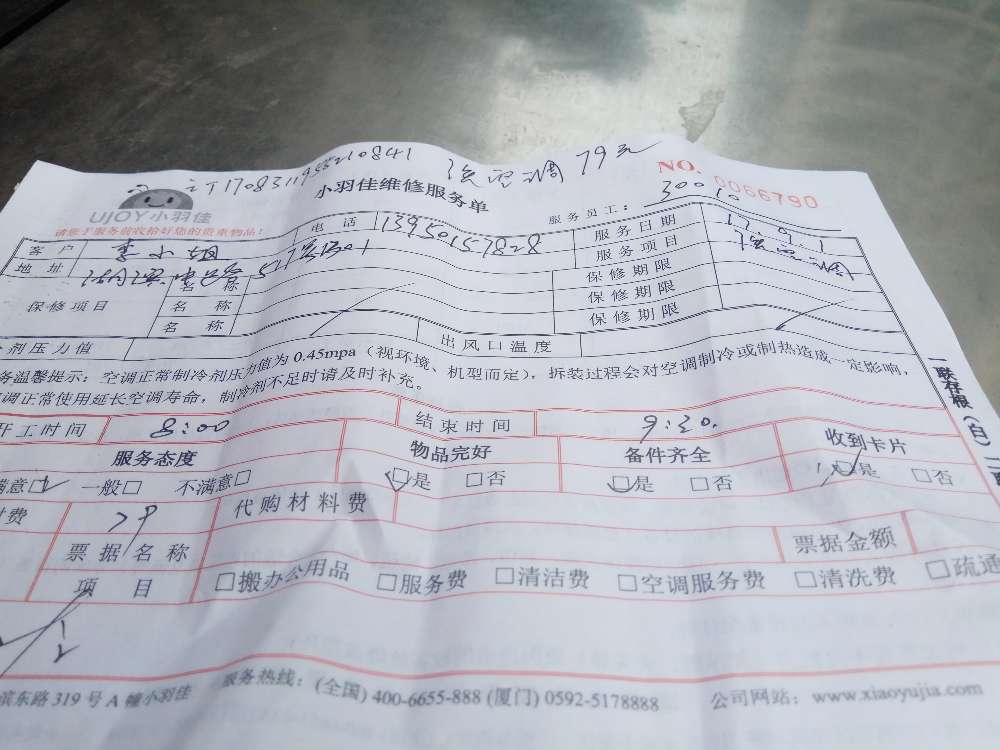 订170831195210841 洗空调 79元
NO. 0066790
UJOY小羽佳
小羽佳维修服务单
服务员工: 30010
请您于服务前收拾好您的贵重物品!
客户 李小姐 电话 13950157828 服务日期 17.9.1
地址 服务项目 洗空调
保修项目 名称 保修期限
名称 保修期限
名称 保修期限
剂压力值 出风口温度
务温馨提示:空调正常制冷剂压力值为0.45mpa(视环境、机型而定),拆装过程会对空调制冷或制热造成一定影响,
调正常使用延长空调寿命,制冷剂不足时请及时补充。
开工时间 8:00 结束时间 9:30.
服务态度 物品完好 备件齐全 收到卡片
满意□ 一般□ 不满意□ □是 □否 □是 □否 □是 □否
费 79 代购材料费
票据名称 票据金额
项目 □搬办公用品 □服务费 □清洁费 □空调服务费 □清洗费 □疏通
滨东路319号A幢小羽佳 服务热线:(全国)400-6655-888 (厦门)0592-5178888 公司网站:www.xiaoyujia.com
一联存根(白)二